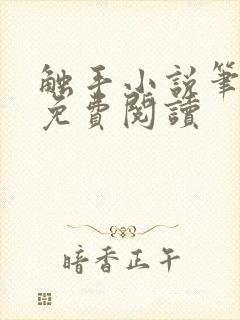 触手小说笔
免費閱讀
暗香正午